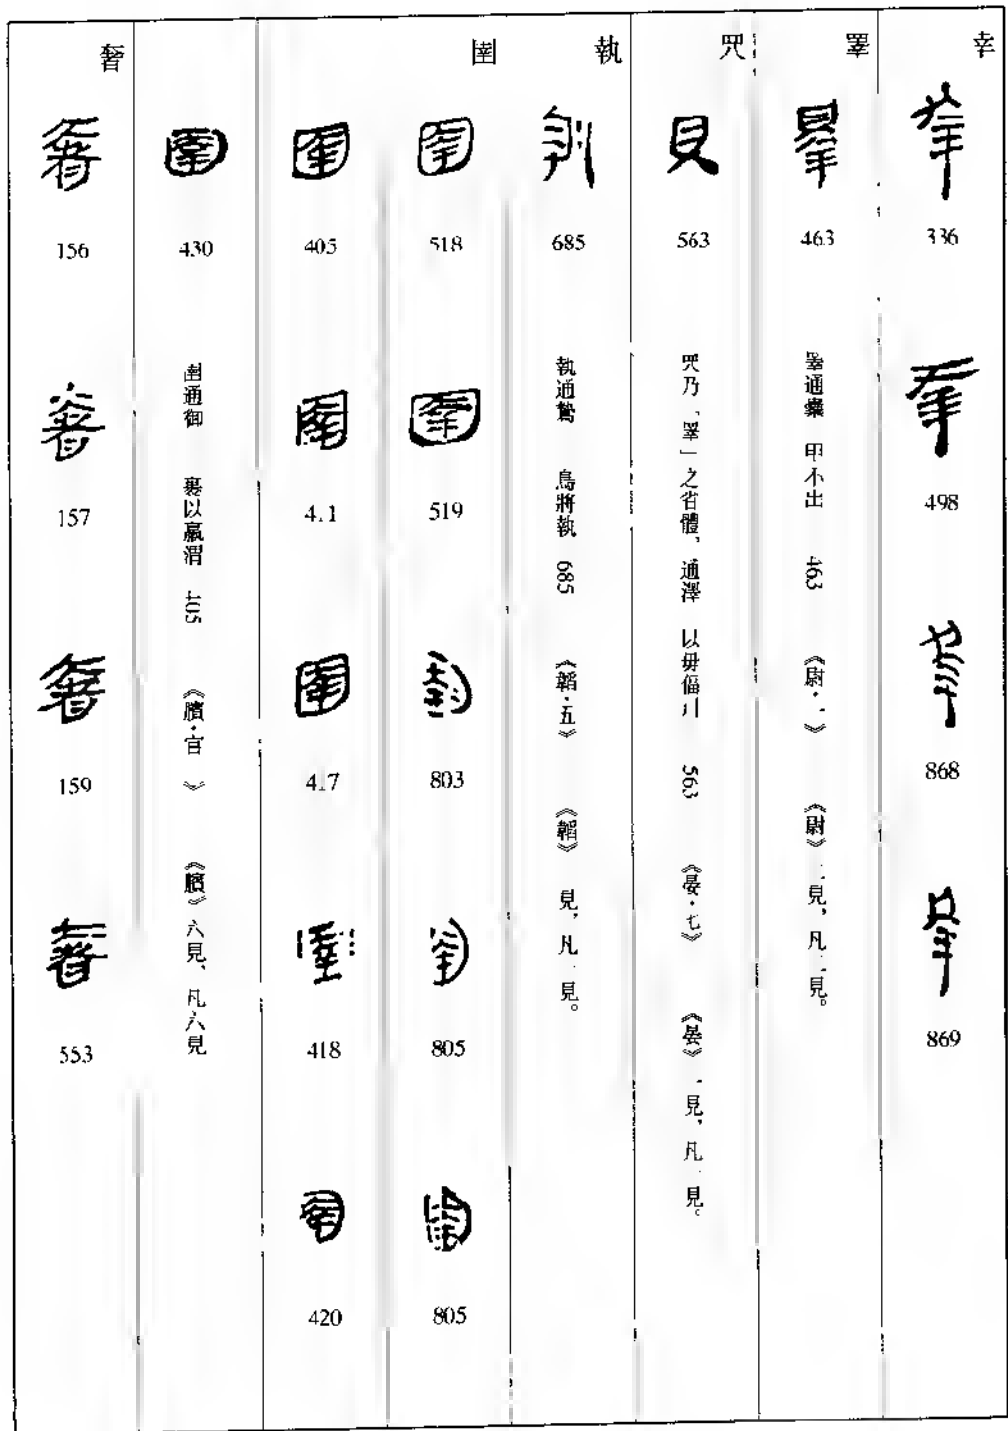 㚔
336
498
868
869
睪
463
睪通櫜 甲不出 463 《尉·一》 《尉》一見，凡一見。
𡗞
563
乃「睪」之省體，通澤 以毋偪川 563 《晏·七》 《晏》一見，凡一見。
執
685
執通鷙 鳥將執 685 《韜·五》 《韜》一見，凡一見。
圉
518
519
803
805
805
405
411
417
418
420
430
圉通御 裹以贏渭 405 《臏·官一》 《臏》六見，凡六見
奢
156
157
159
553